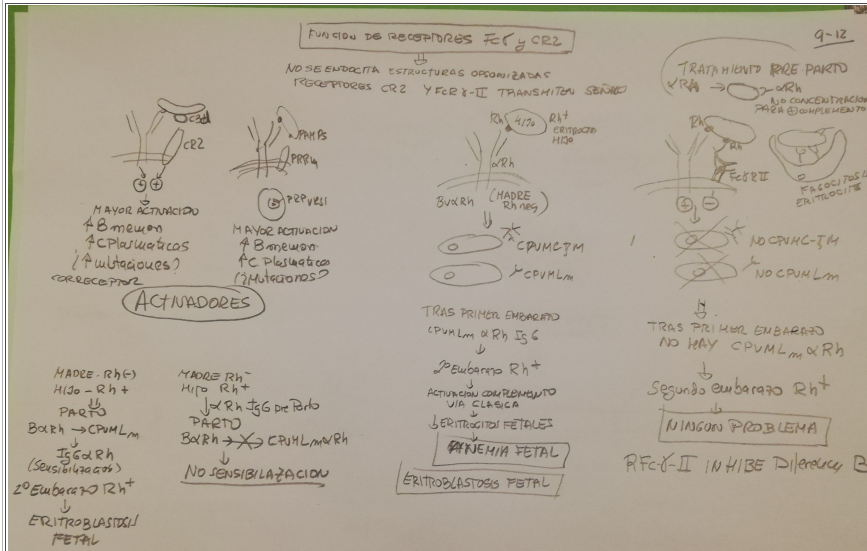 FUNCION DE RECEPTORES Fcγ y CR2
9-12
NO SE ENDOCITA ESTRUCTURAS OPSONIZADAS
RECEPTORES CR2 Y FcRγ-II TRANSMITEN SEÑAL
C3d
CR2
+ +
MAYOR ACTIVACION
↑ B memori
↑ C Plasmaticos
¿↑ mutaciones?
CORRECEPTOR
PAMPS
PRRm
PRRvesi
MAYOR ACTIVACION
↑ B memori
↑ C Plasmaticos
(¿Mutaciones?)
ACTIVADORES
MADRE - Rh(-)
HIJO - Rh+
PARTO
BαRh → CPVMLm
IgGαRh
(Sensibilización)
2º Embarazo Rh+
ERITROBLASTOSIS
FETAL
MADRE Rh-
HIJO Rh+
αRh IgG pre Parto
PARTO
BαRh → CPVMLmαRh
NO SENSIBILIZACION
Rh
HIJO
Rh+
ERITROCITO
HIJO
αRh
BναRh
(MADRE
Rh neg)
CPVMC-IgM
CPVMLm
TRAS PRIMER EMBARAZO
CPVMLm αRh IgG
2º Embarazo Rh+
ACTIVACION COMPLEMENTO
VIA CLASICA
↓ERITROCITOS FETALES
ANEMIA FETAL
ERITROBLASTOSIS FETAL
TRATAMIENTO PRE PARTO
αRh → αRh
NO CONCENTRACION
PARA ⊕ COMPLEMENTO
Rh
Rh
FcγRII
+ -
FAGOCITOSIS
ERITROCITOS
NO CPVMC-IgM
NO CPVMLm
TRAS PRIMER EMBARAZO
NO HAY CPVMLm αRh
Segundo embarazo Rh+
NINGUN PROBLEMA
RFc-γ-II INHIBE Diferenc B